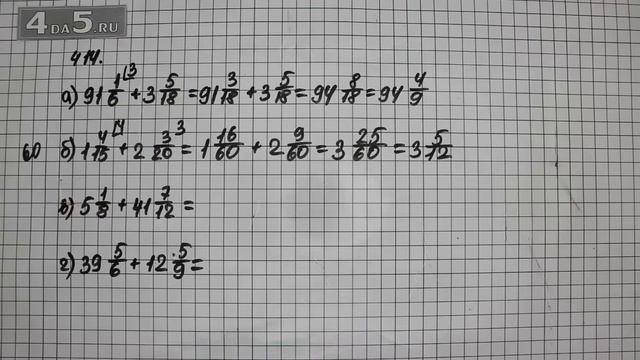 4DA5.RU
414.
а) 91 1/6 ⌊3 + 3 5/18 = 91 3/18 + 3 5/18 = 94 8/18 = 94 4/9
60 б) 1 4/15 ⌊4 + 2 3/20 ⌊3 = 1 16/60 + 2 9/60 = 3 25/60 = 3 5/12
в) 5 1/8 + 41 7/12 =
г) 39 5/6 + 12 5/9 =